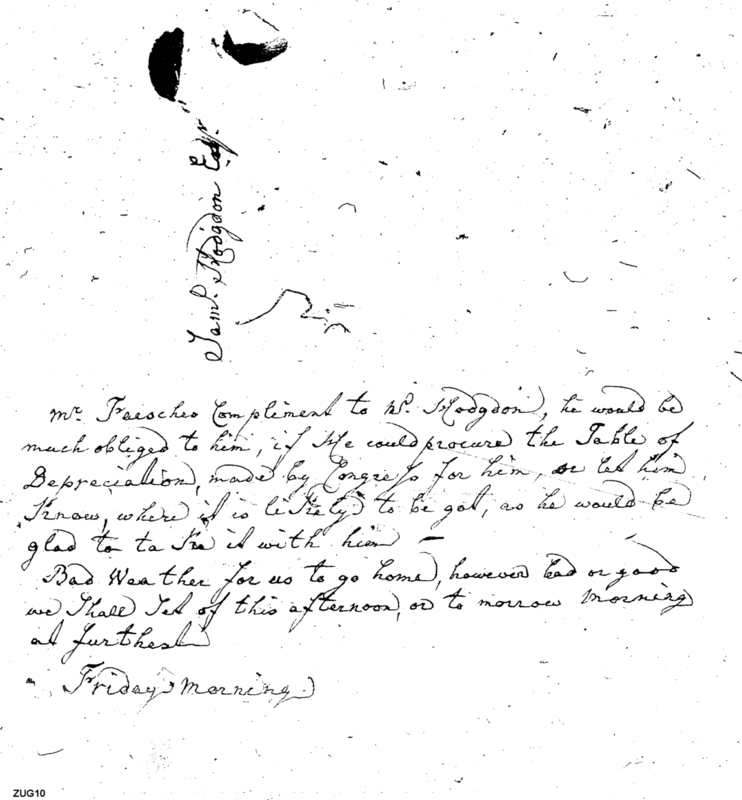 Saml. Hodgdon Esqr.
Mr. Compliment to Mr. Hodgdon, he would be
much obliged to him, if He could procure the Table of
Depreciation, made by Congress for him, or let him
Know, where it is likely to be got, as he would be
glad to ta Ke it with him —
Bad Weather for us to go home, however bad or good
we Shall Set of this afternoon, or to morrow Morning
at furthest
Friday Morning
ZUG10